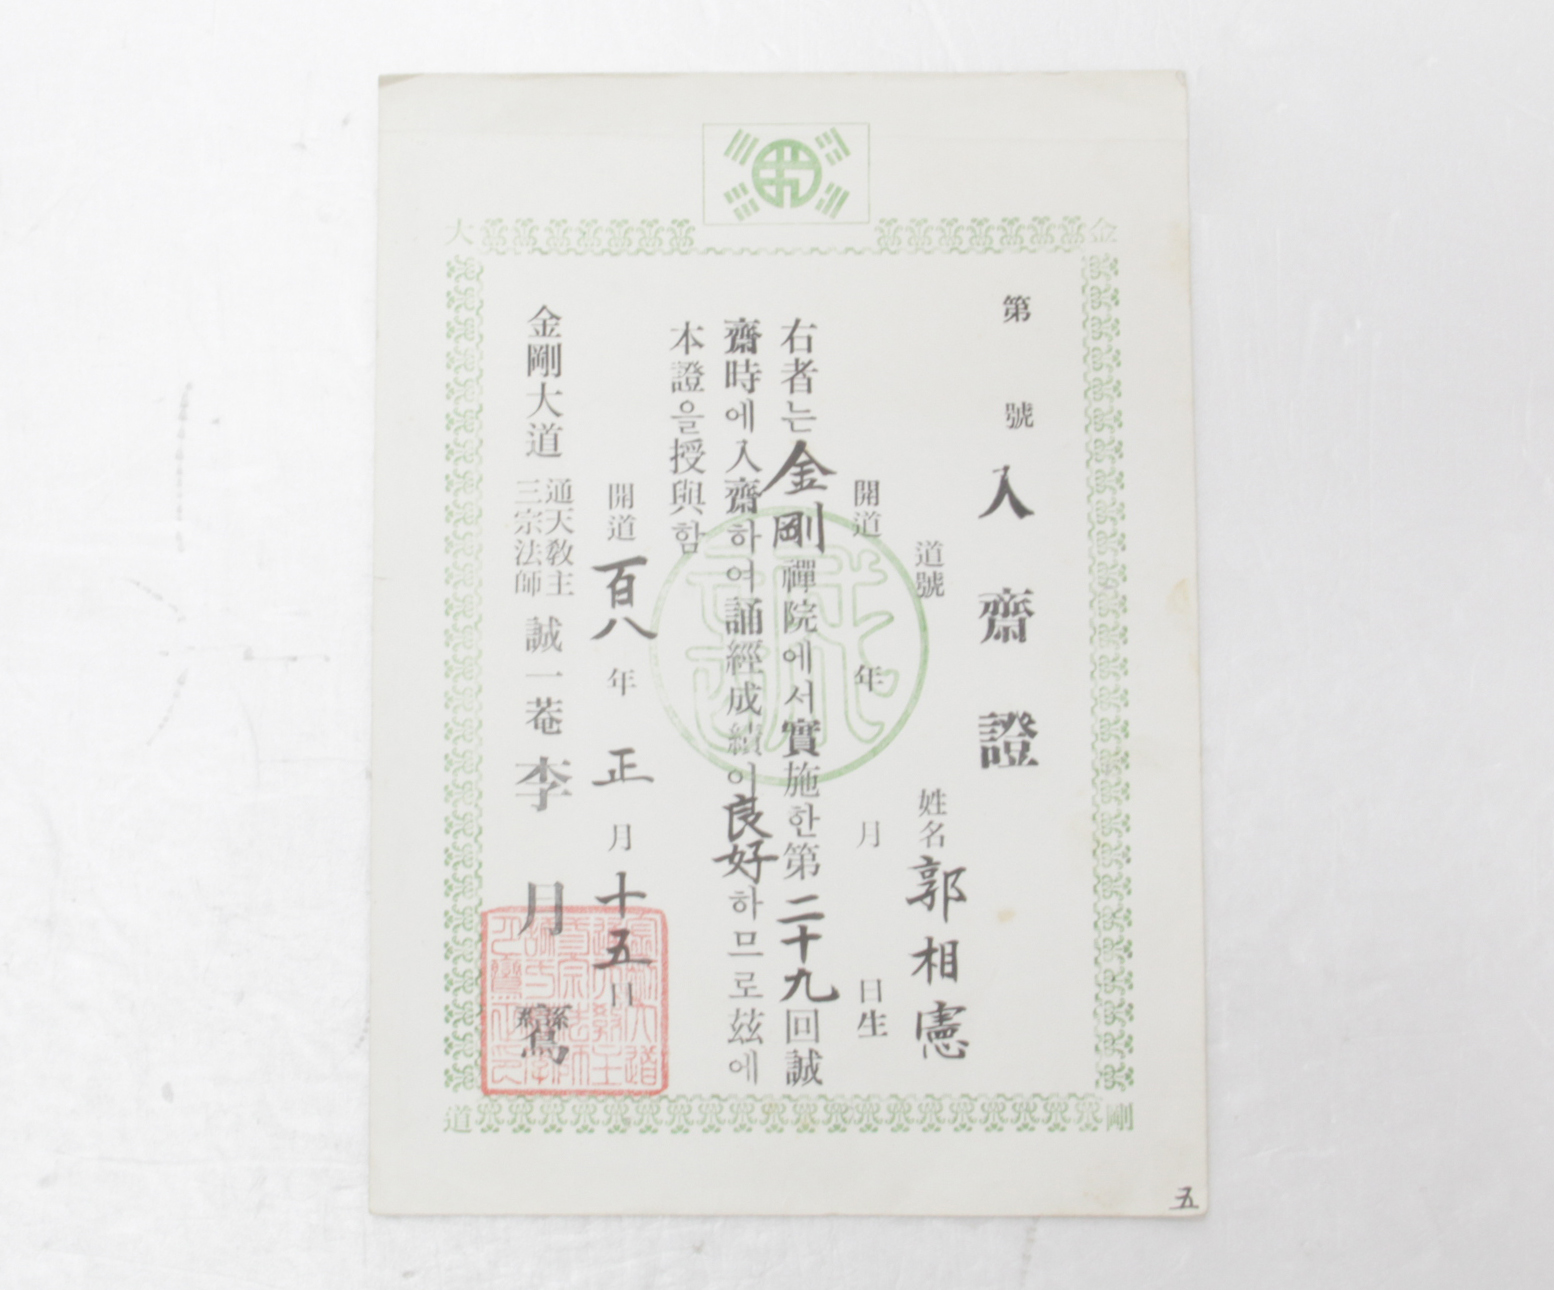 金
剛
大
道
第 號
入齋證
道號 姓名 郭相憲
開道 年 月 日生
右者는 金剛禪院에서 實施한 第二十九回 誠
齋時에 入齋하여 誦經成績이 良好하므로 玆에
本證을 授與함
開道 百八年 正月 十五日
金剛大道 通天教主
三宗法師 誠一菴 李月鸞
誠
五